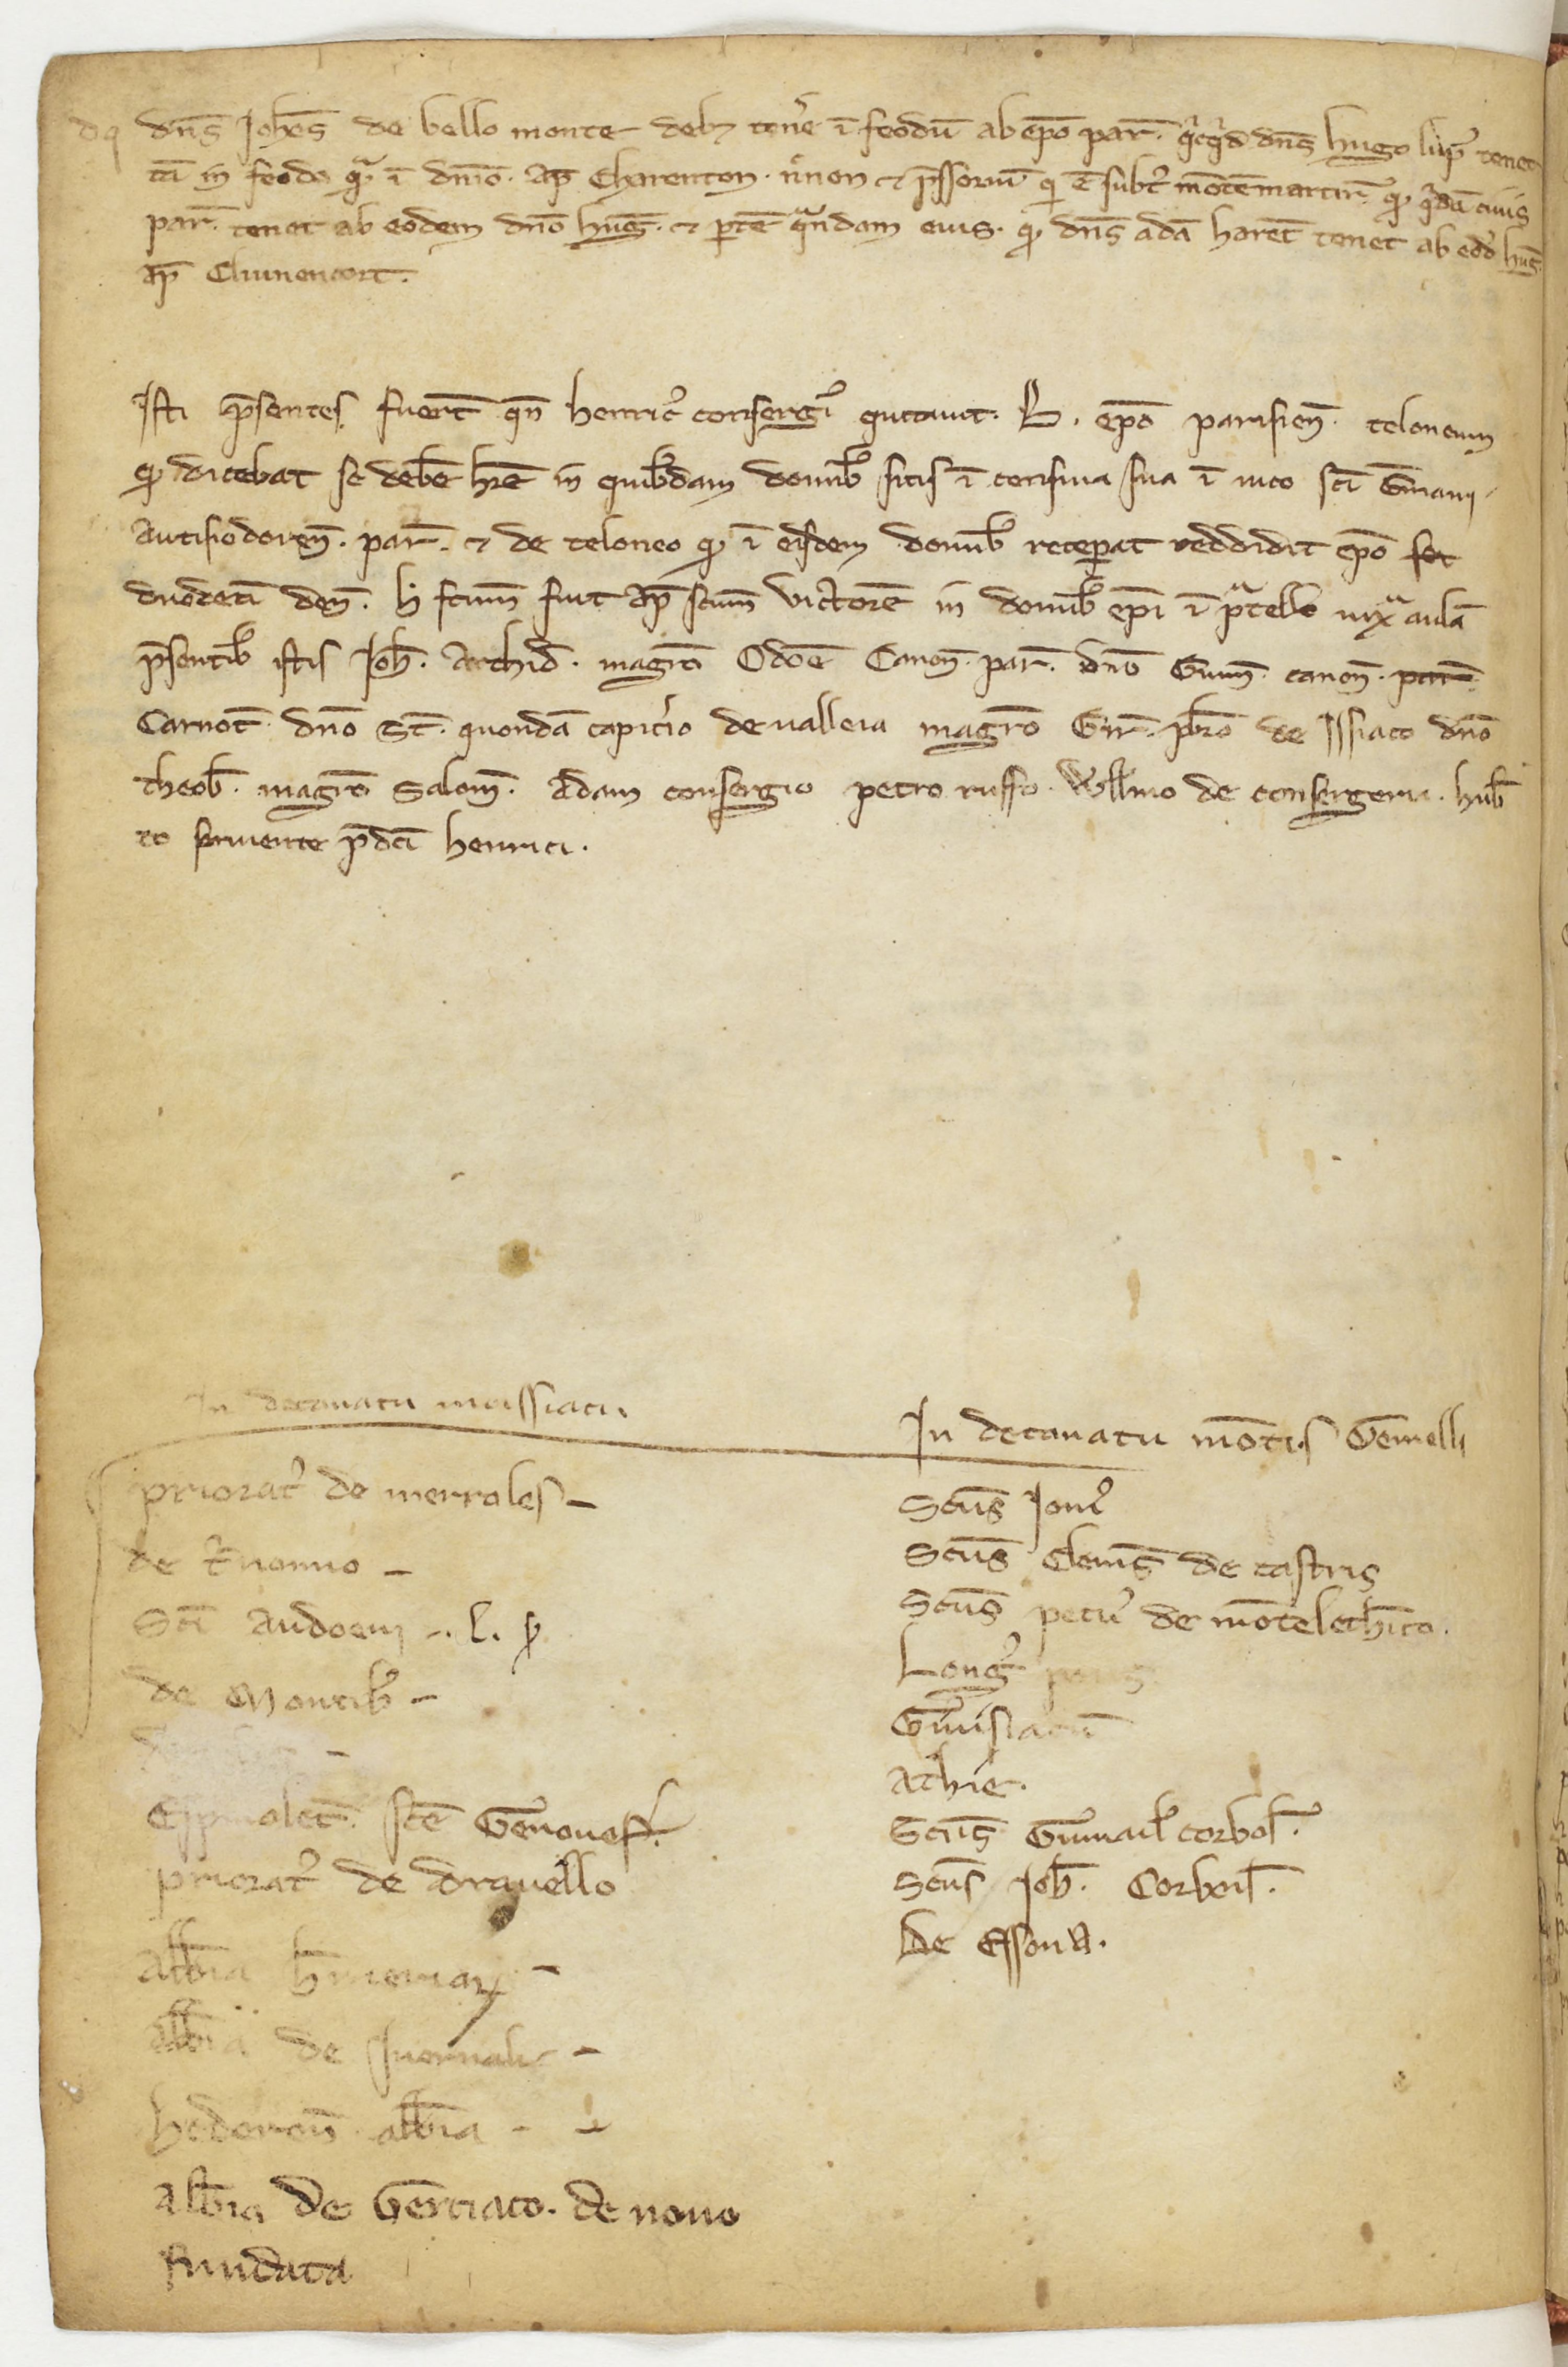 dn̄s Joh̄es de bello monte debꝫ ten̄e ī feodū ab ep̄o par̄. qͥcqͥd dn̄s hugo lupꝰ tenet
tā in feodo qͣ ī dn̄io. ap̄ Charenton. n̄non ⁊ p̄ssoriū qͥ ē subtꝰ mōtēmartir̄. qͦ qͥdā ciuis
par̄. tenet ab eodem dn̄o huḡ. ⁊ ꝑtē qͣndam eius. qͣ dn̄s adā harēt tenet ab eod̄ huḡ.
ap̄ Clunencort.
Isti p̄sentes fuer̄t qn̄ henricꝰ consergꝰ quitauit. E. ep̄o parisien̄. teloneum
qͦ dicebat se deb̄e h̄re in quibꝰdam domibꝰ sitis ī censiua sua ī uico sc̄i Ḡmani
Autisiodoren̄. par̄. ⁊ de teloneo qͦ ī eisdem domibꝰ receꝑat reddidit ep̄o
duodecī den̄. h̄ fc̄um fuit ap̄ sc̄um victorē in domibꝰ ep̄i ī pͣtello iuxͣ aulā
p̄sentibꝰ istis Joh̄. Archid̄. magr̄o Odoē Canon̄. par̄. dn̄o Guill̄. canon̄. par̄.
Carnot̄. dn̄o St̄. quondā capic̄io de ualleia magr̄o Gir̄. pb̄ro de Issiaco dn̄o
theob̄. magr̄o Salom̄. Adam consergio petro ruffo. Will̄mo de consergeria. hub̄
to seruiente p̄dc̄i henrici.
In decanatu moissiaci
prioratꝰ de merroles –
de
Sc̄i Audoeni –. l. p̄
de Montibꝰ –
Espinolet̄. sc̄e Genouef̄.
prioratꝰ de drauello
Abb̄ia h̄meriaꝝ –
Abb̄ia de Juernali –
hederen̄ abb̄ia –
Abb̄ia de Gerciaco. de nouo
fundata
In decanatu mōtis Gemelli
Sc̄us Ionꝰ
Sc̄us Clem̄s de castris
Sc̄us petrꝰ de mōteleth̄ico.
Longꝰ
Athie.
Sc̄us Guinailꝰ corbol̄.
Sc̄us Joh̄. Corboil̄.
De Essona.